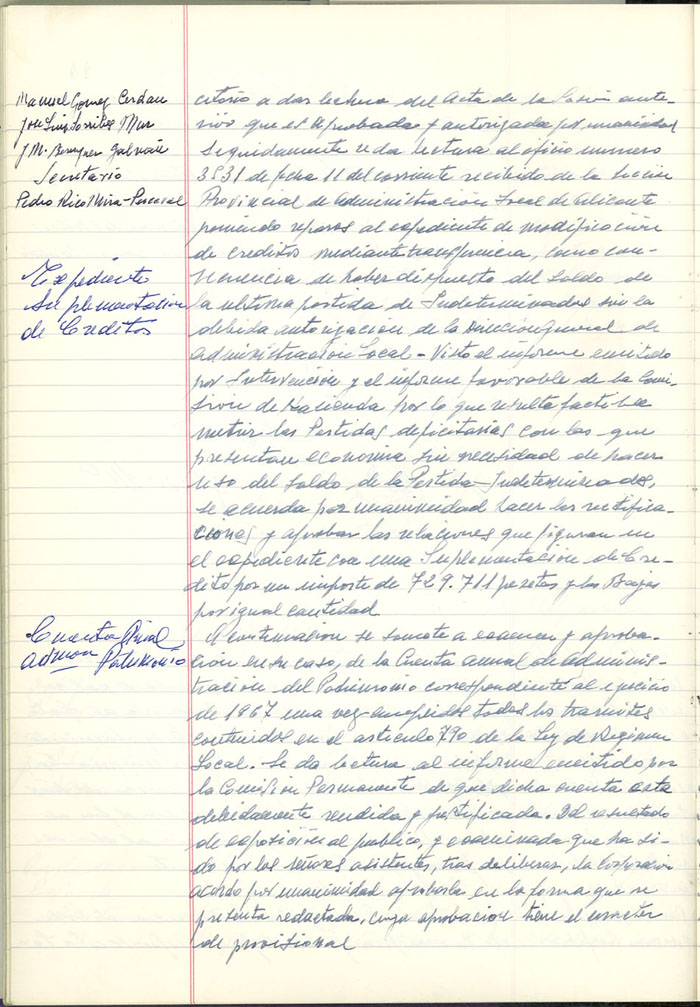 Manuel Gomez Cerdan
Jose Luis Torribes Mur
J.M. Berenguer Galvañ
Secretario
Pedro Rico Mira-Perceval
Expediente
Suplementacion
de Creditos
Cuenta Anual
admon Patrimonio
citorio a dar lectura del Acta de la Sesion ante-
rior que es aprobada y autorizada por unanimidad
Seguidamente se da lectura al oficio numero
3531 de fecha 11 del corriente recibido de la Seccion
Provincial de Administración Local de Alicante
poniendo reparos al expediente de modificación
de creditos mediante transferencia, como con-
secuencia de haber dispuesto del saldo de
la ultima partida de Indeterminados sin la
debida autorizacion de la Direccion General de
administracion Local - Visto el informe emitido
por Intervención y el informe favorable de la Comi-
sion de Hacienda por lo que resulta factible
nutrir las Partidas deficitarias con las que
presentan economia sin necesidad de hacer
uso del saldo de la Partida Indeterminados,
se acuerda por unanimidad hacer las rectifica-
ciones y aprobar las relaciones que figuran en
el expediente con una Suplementacion de Cre-
dito por un importe de 729.711 pesetas y las Bajas
por igual cantidad
A continuacion se somete a examen y aproba-
ción en su caso, de la Cuenta anual de adminis-
tración del Patrimonio correspondiente al ejercicio
de 1967 una vez cumplidos todos los tramites
contenidos en el articulo 790 de la Ley de Regimen
Local. Se da lectura al informe emitido por
la Comision Permanente de que dicha cuenta esta
debidamente rendida y justificada. Del resultado
de exposición al publico, y examinada que ha si-
do por los señores asistentes, tras deliberar, la Corporacion
acordo por unanimidad aprobarla en la forma que se
presenta redactada, cuya aprobacion tiene el caracter
de provisional